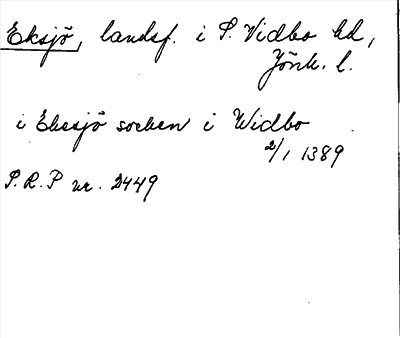 Eksjö, landsf. i S. Vidbo hd,
Jönk. l.
i Ekesjö socken i Widbo
2/1 1389
S.R.P nr. 2449